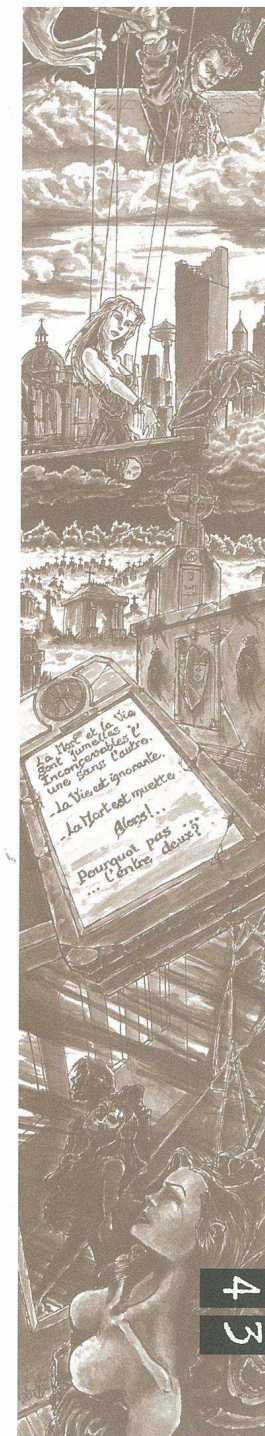 La Mort et la Vie
sont jumelles
inconcevables l'
une sans l'autre.
-La Vie est ignorante.
-La Mort est muette
Alors!...
Pourquoi pas ...
... l'entre deux?
4
3